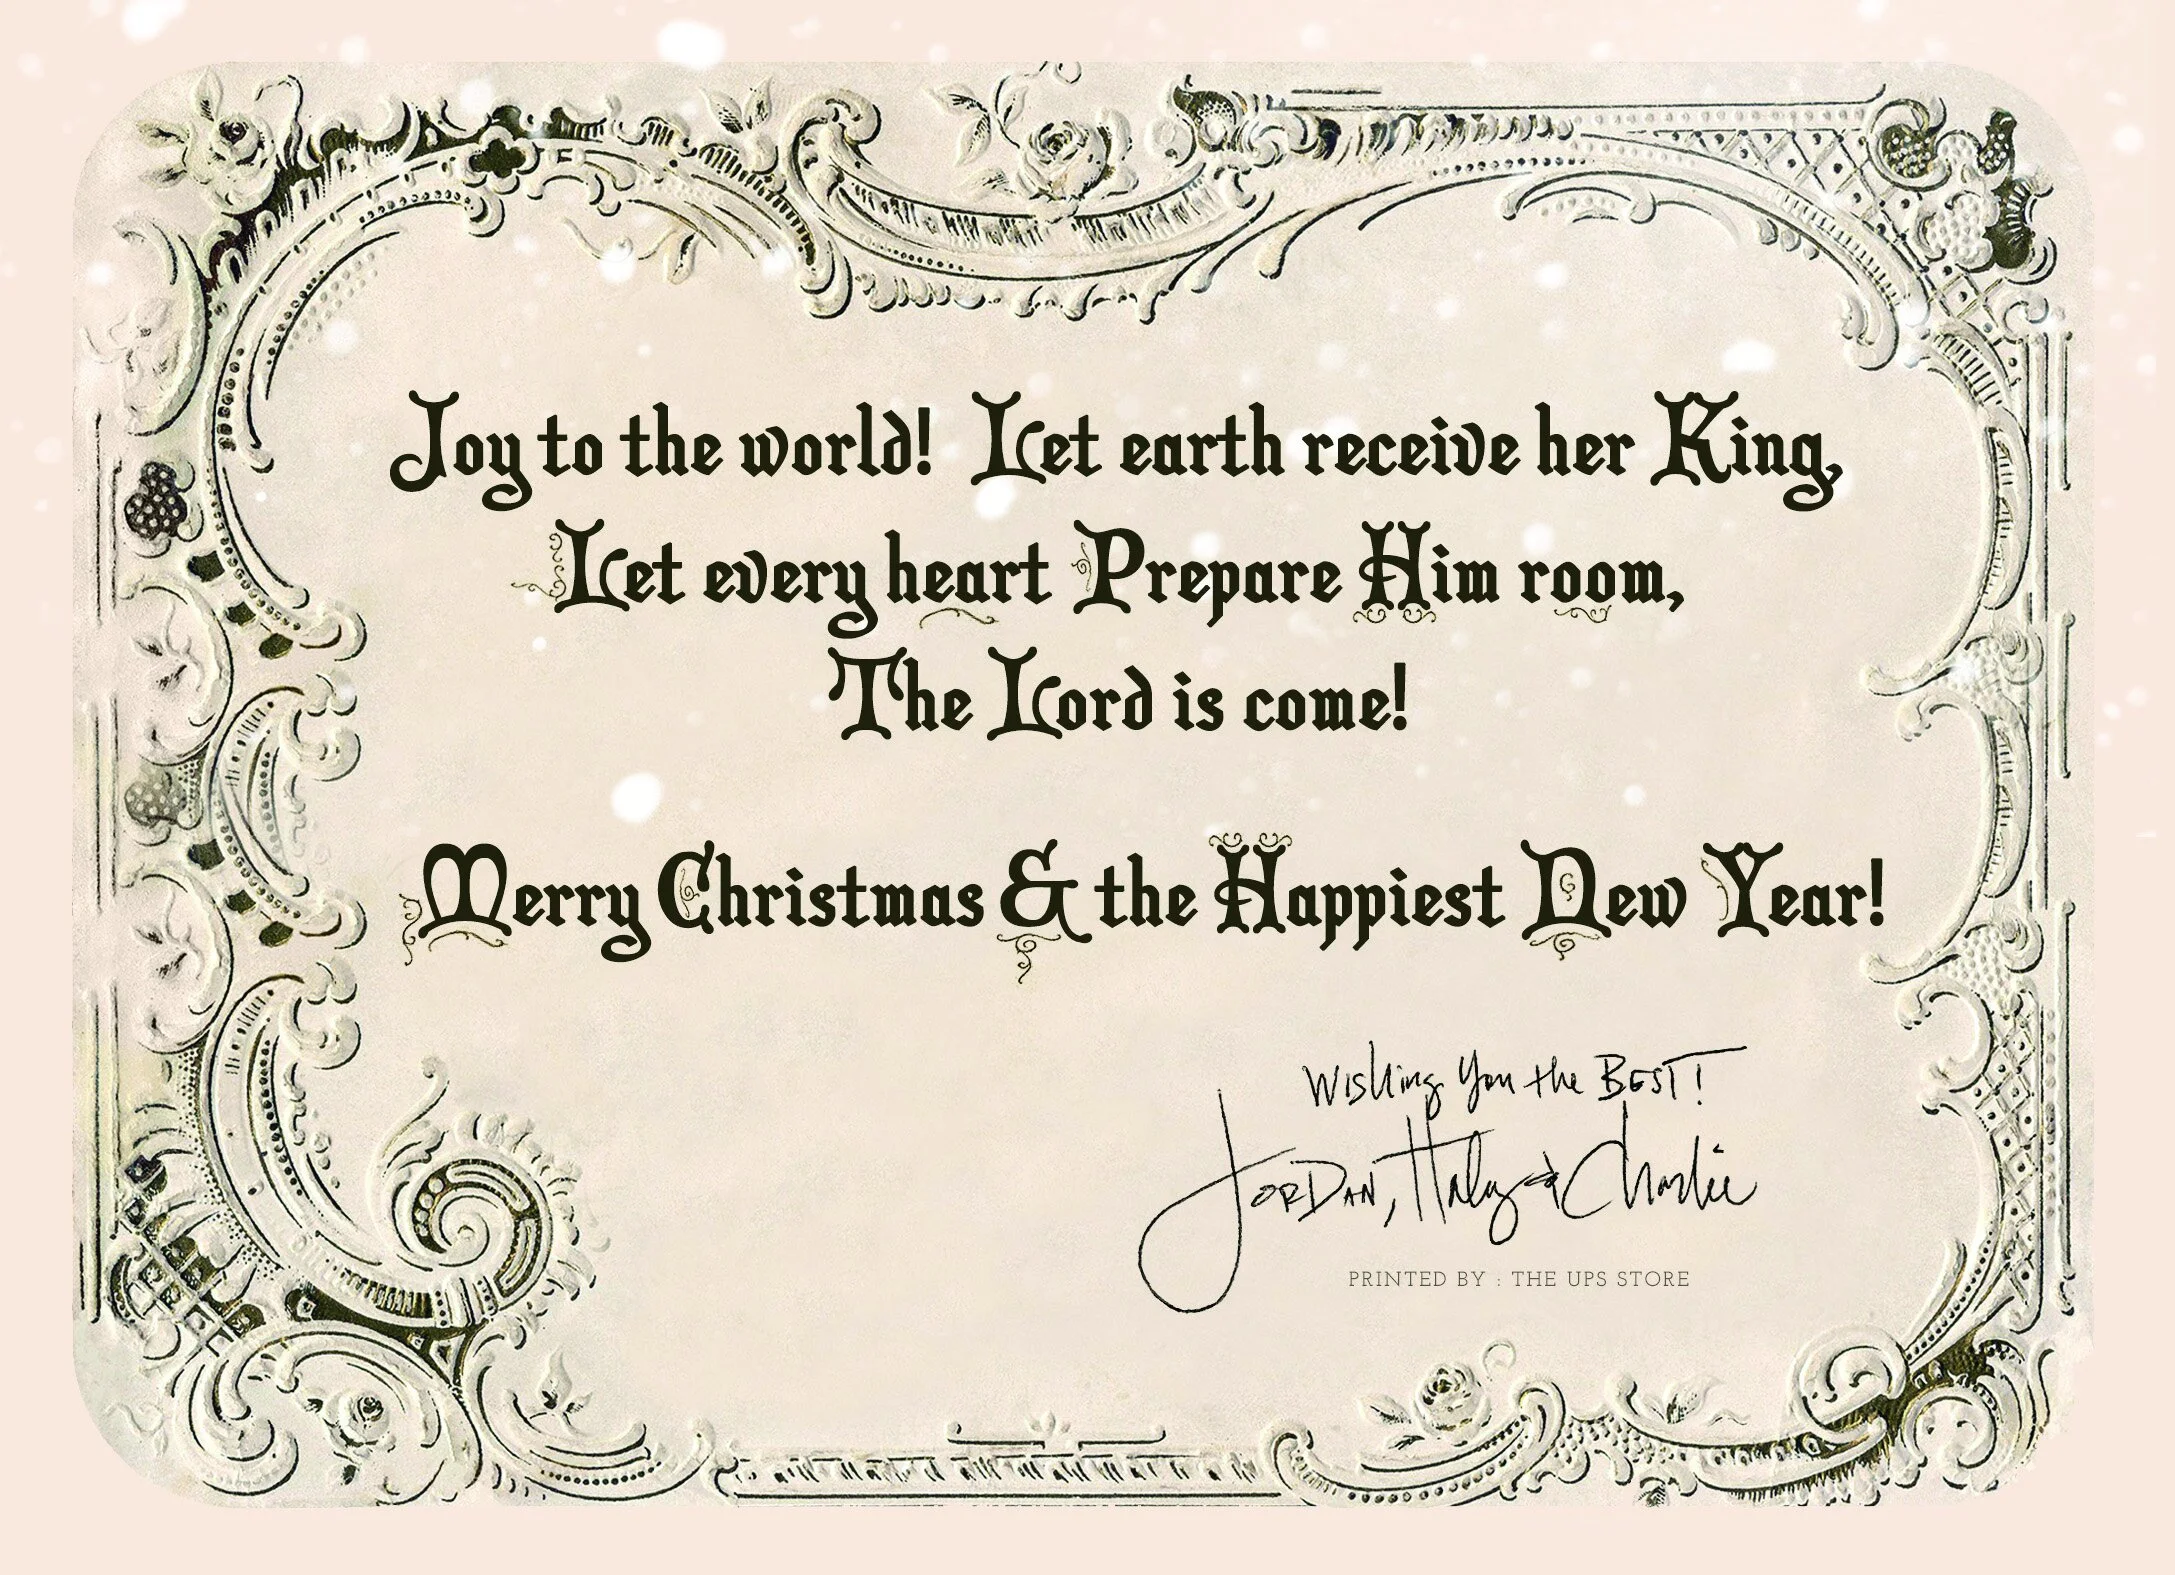 Joy to the world! Let earth receive her King,
Let every heart Prepare Him room,
The Lord is come!
Merry Christmas & the Happiest New Year!
Wishing You the BEST!
JORDAN, Haley & Charlie
PRINTED BY : THE UPS STORE